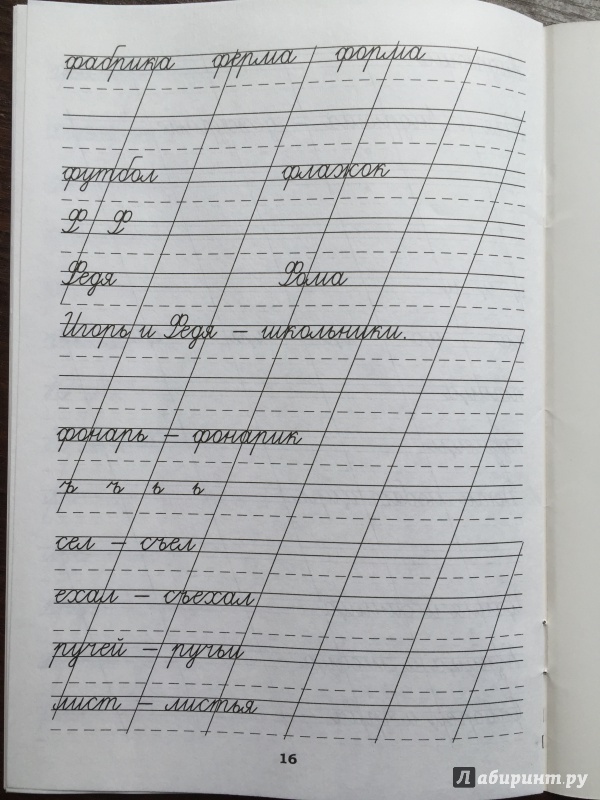 фабрика ферма форма
футбол флажок
Ф Ф
Федя Фома
Игорь и Федя – школьники.
фонарь – фонарик
ъ ъ ь ь
сел – съел
ехал – съехал
ручей – ручьи
лист – листья
16
Лабиринт.ру